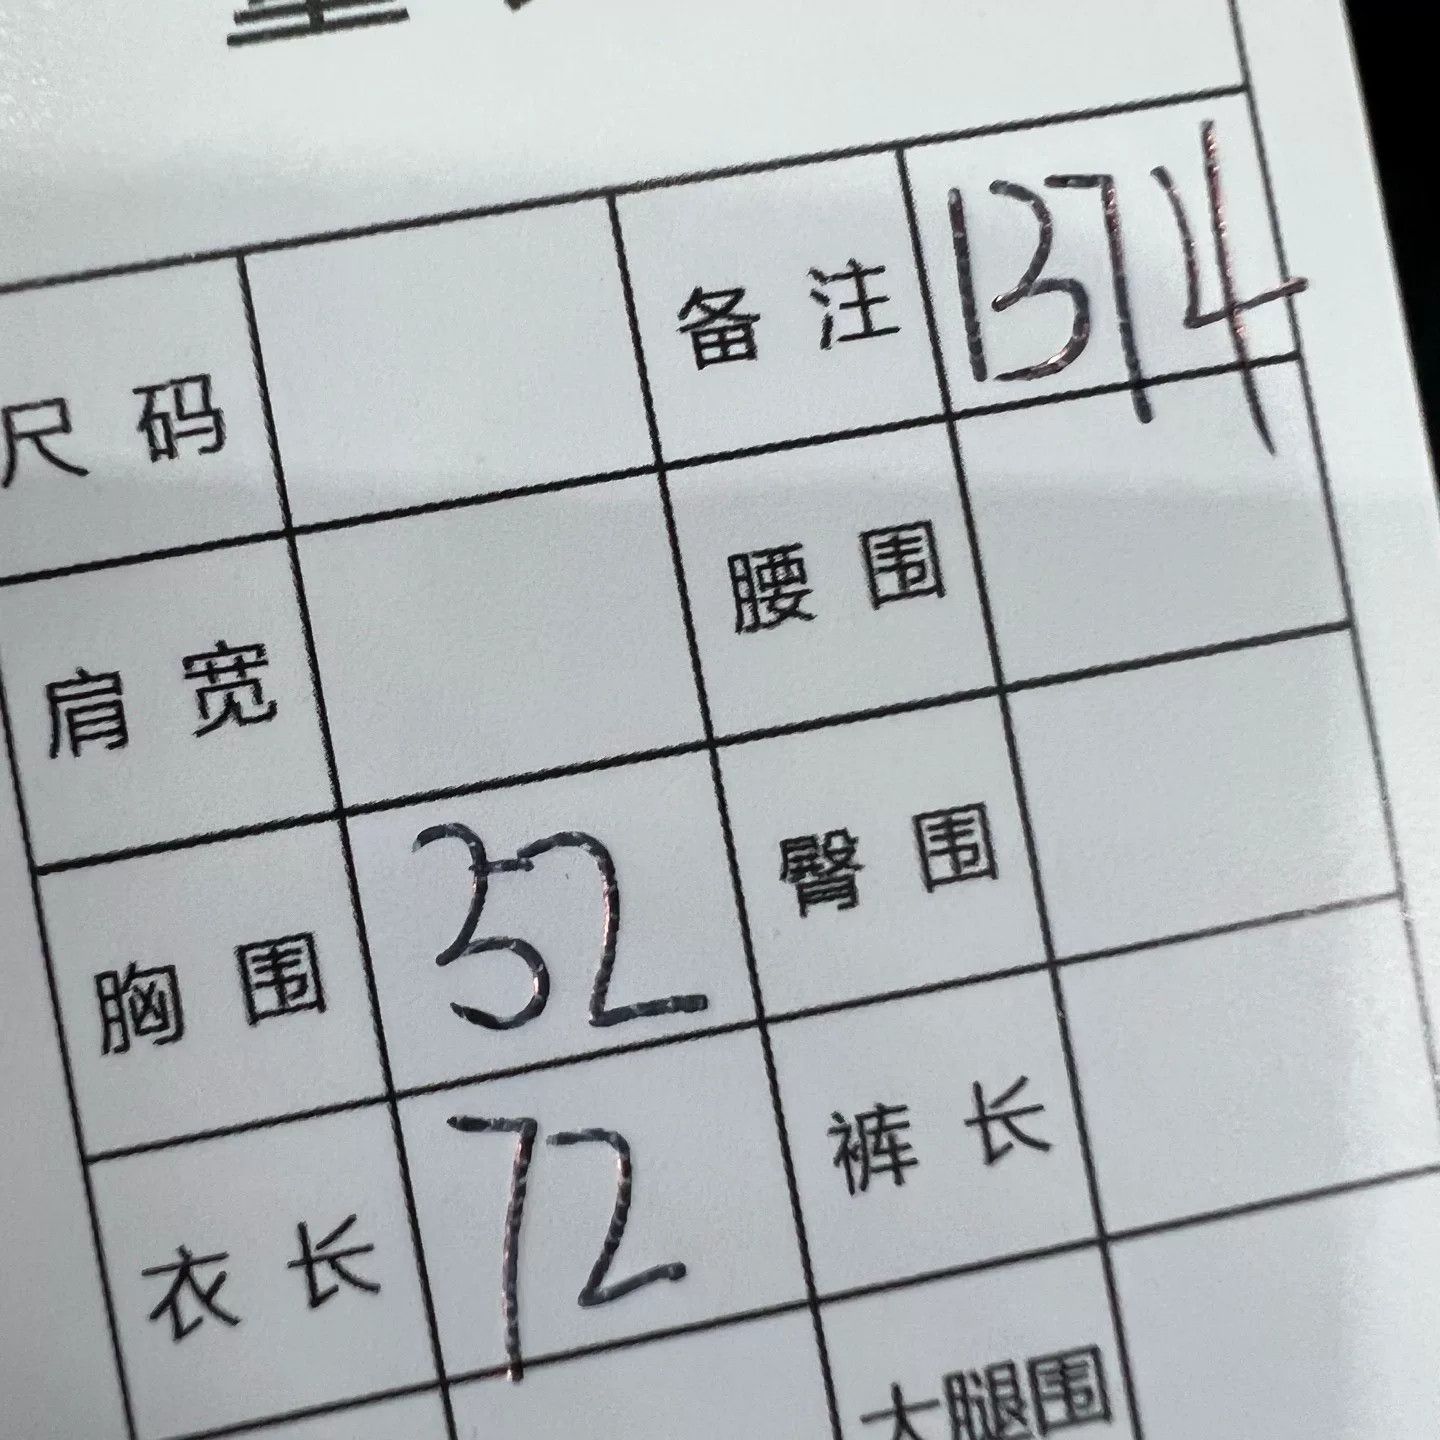 尺码 备注 1374
肩宽 腰围
胸围 32 臀围
衣长 72 裤长
大腿围